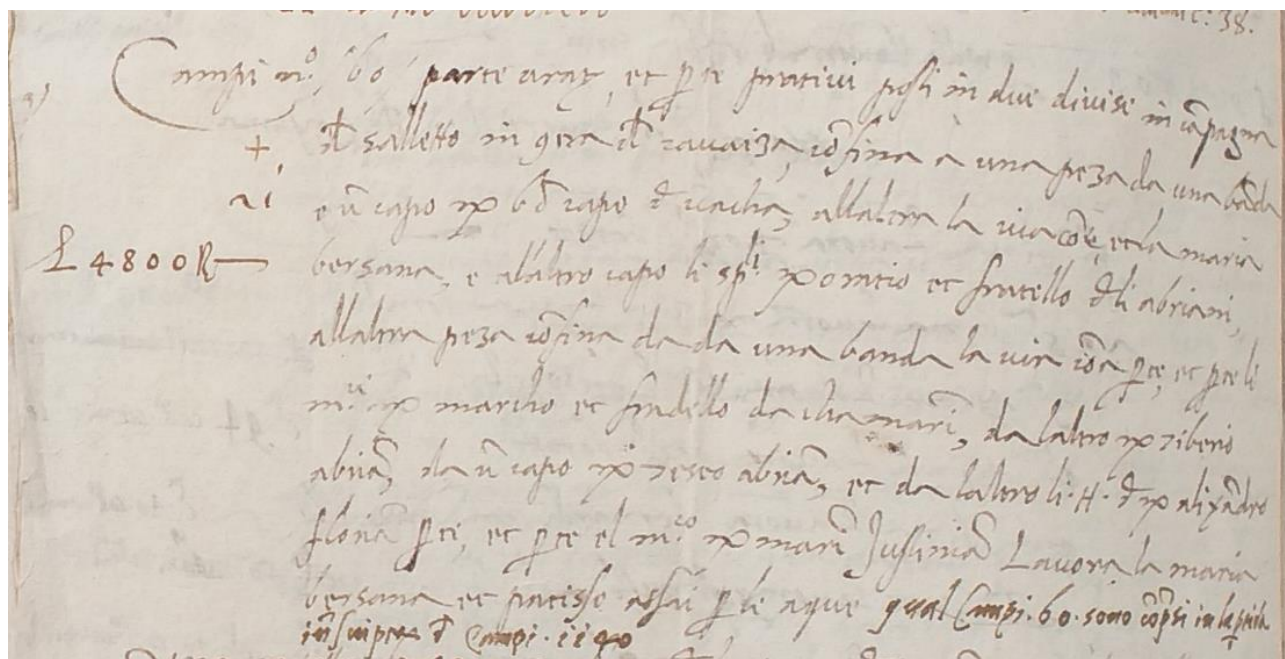 c. 38.
Campi n.o 60 parte arat, et pte prativi posti in due divise in cāpagna
+ dl salletto in gera dl ravaiza, cōfina a una peza da una bāda
e ū capo alla altra la via cōe, et la maria
£ 4800 R— bersana, e al altro capo li sp.li oratio et fratello dli abriani,
all altra peza cōfina da da una banda la via cōa pte, et pte li
m.ci marcho et fradello da cha marī, da l altro tiberio
abriā, da ū capo teseo abriā, et da l altro li H. d alixādro
floriā pte, et pte el m.co marī Justiniā Lavora la maria
bersana et patisse assai p le aque qual Campi. 60. sono cōpsi in la
d Campi. 1140